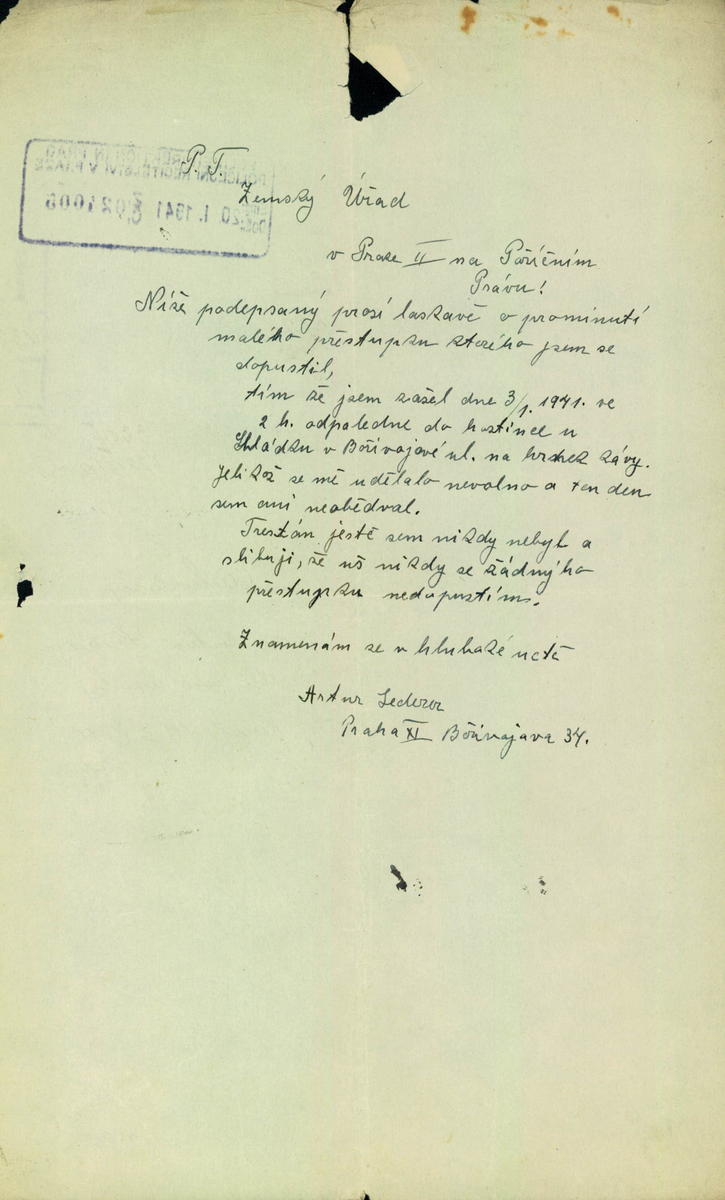 P. T.
Zemský Úřad
v Praze II na Poříčním
Právu!
Níže podepsaný prosí laskavě o prominutí
malého přestupku kterého jsem se
dopustil,
tím že jsem zašel dne 3/1. 1941. ve
2 h. odpoledne do hostince u
Skládku v Bořivojově ul. na hrnek kávy.
Jelikož se mě udělalo nevolno a ten den
sem ani neobědval.
Trestán ještě sem nikdy nebyl a
slibuji, že uš nikdy se žádnýho
přestupku nedopustím.
Znamenám se v hluboké uctě
Artur Lederer
Praha XI Bořivojova 34.
20. I. 1941
021006